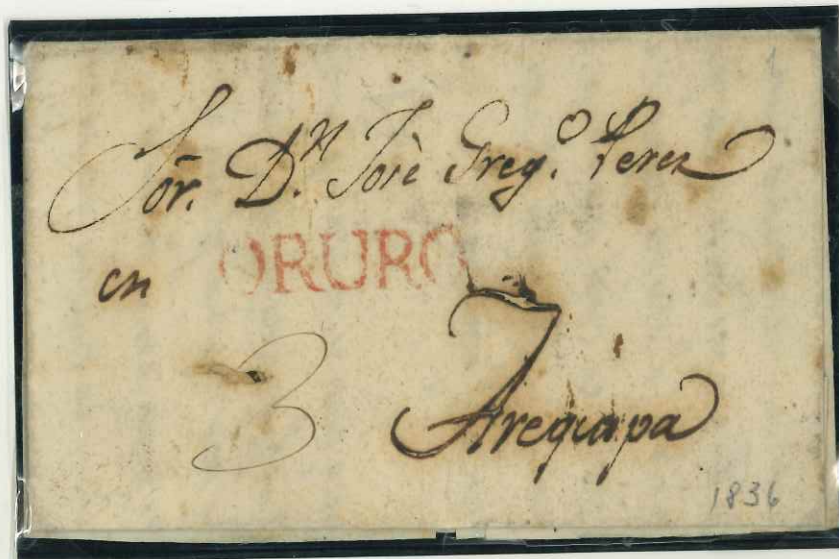 Sōr. D.n Josè Greg.o Perez
en ORURO
3 Arequipa
1836
1